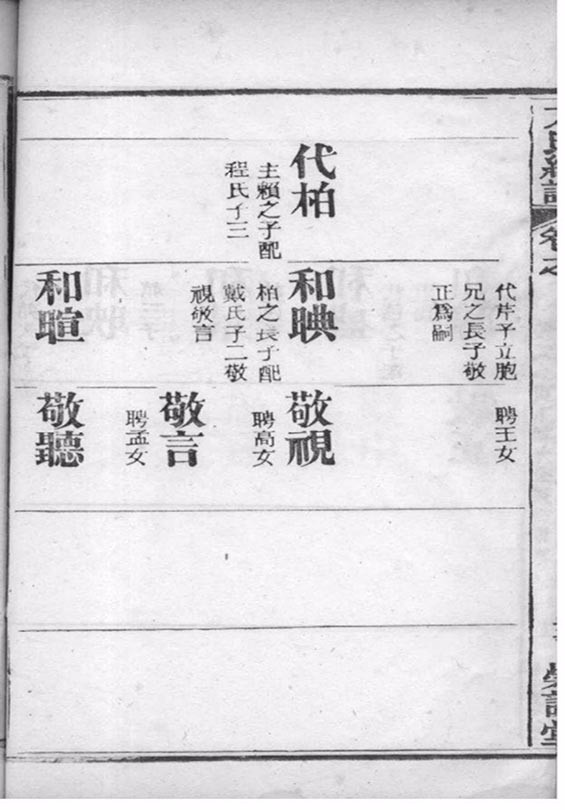 代柏
主賴之子配
程氏子三
代芹子立胞
兄之長子敬
正爲嗣
和暎
柏之長子配
戴氏子二敬
視敬言
和暄
聘王女
敬視
聘高女
敬言
聘孟女
敬聽